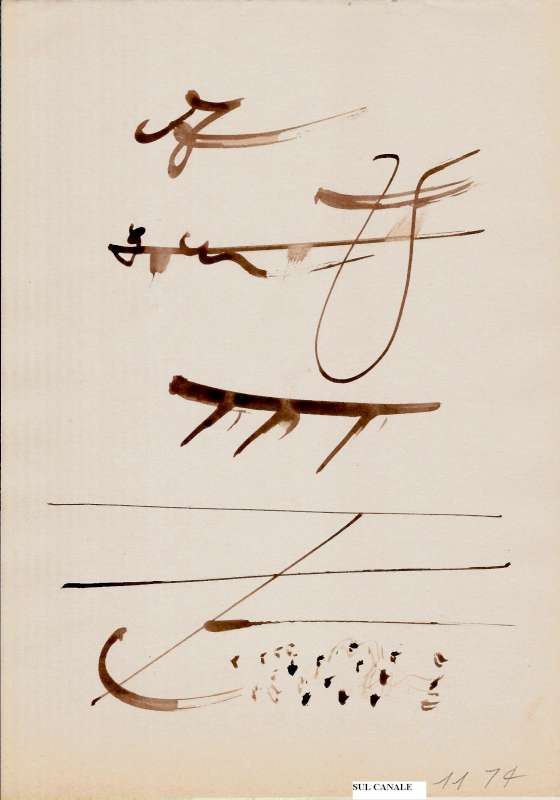 SUL CANALE 11 74